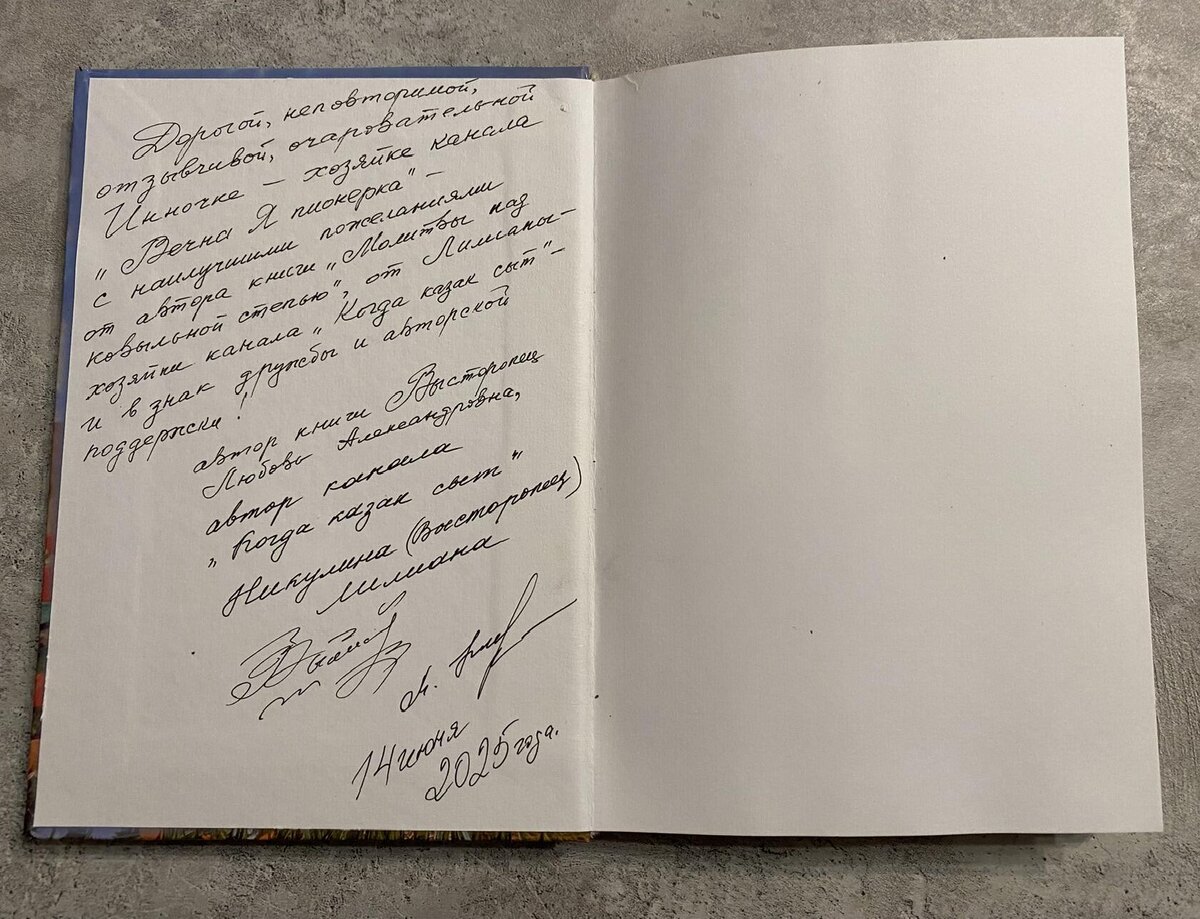 Дорогой, неповторимой,
отзывчивой, очаровательной
Инночке – хозяйке канала
„Вечна Я пионерка" –
с наилучшими пожеланиями
от автора книги „Молитвы над
ковыльной степью", от Лилианы –
хозяйки канала „Когда казак сыт" –
и в знак дружбы и авторской
поддержки!
автор книги Высторопец
Любовь Александровна,
автор канала
„Когда казак сыт"
Никулина (Высторопец)
Лилиана
14 июня
2025 года.